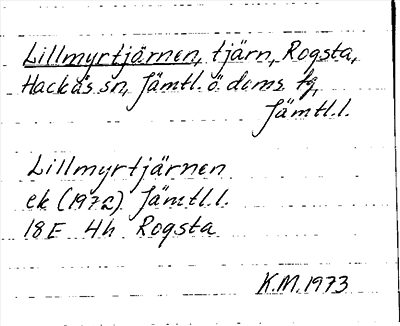 Lillmyrtjärnen, tjärn, Rogsta,
Hackås sn, Jämtl. ö. doms. tg,
Jämtl.l.
Lillmyrtjärnen
ek (1972) Jämtl.l.
18E 4h Rogsta
K.M. 1973